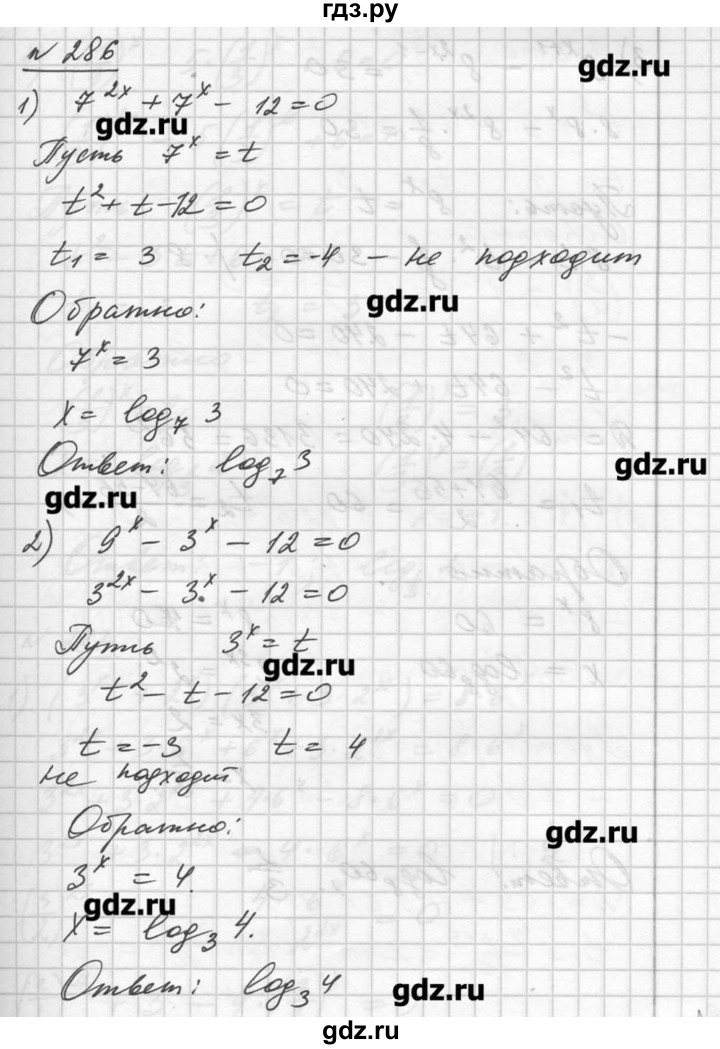 гдз.ру
№ 286
gdz.ru
1) 7^{2x} + 7^x - 12 = 0
gdz.ru
Пусть 7^x = t
t^2 + t - 12 = 0
t_1 = 3 t_2 = -4 - не подходит
gdz.ru
Обратно:
7^x = 3
x = log_7 3
Ответ: log_7 3
gdz.ru
gdz.ru
2) 9^x - 3^x - 12 = 0
3^{2x} - 3^x - 12 = 0
Путь 3^x = t
gdz.ru
t^2 - t - 12 = 0
t = -3 t = 4
не подходит
Обратно:
gdz.ru
3^x = 4.
gdz.ru
x = log_3 4.
Ответ: log_3 4
gdz.ru
gdz.ru